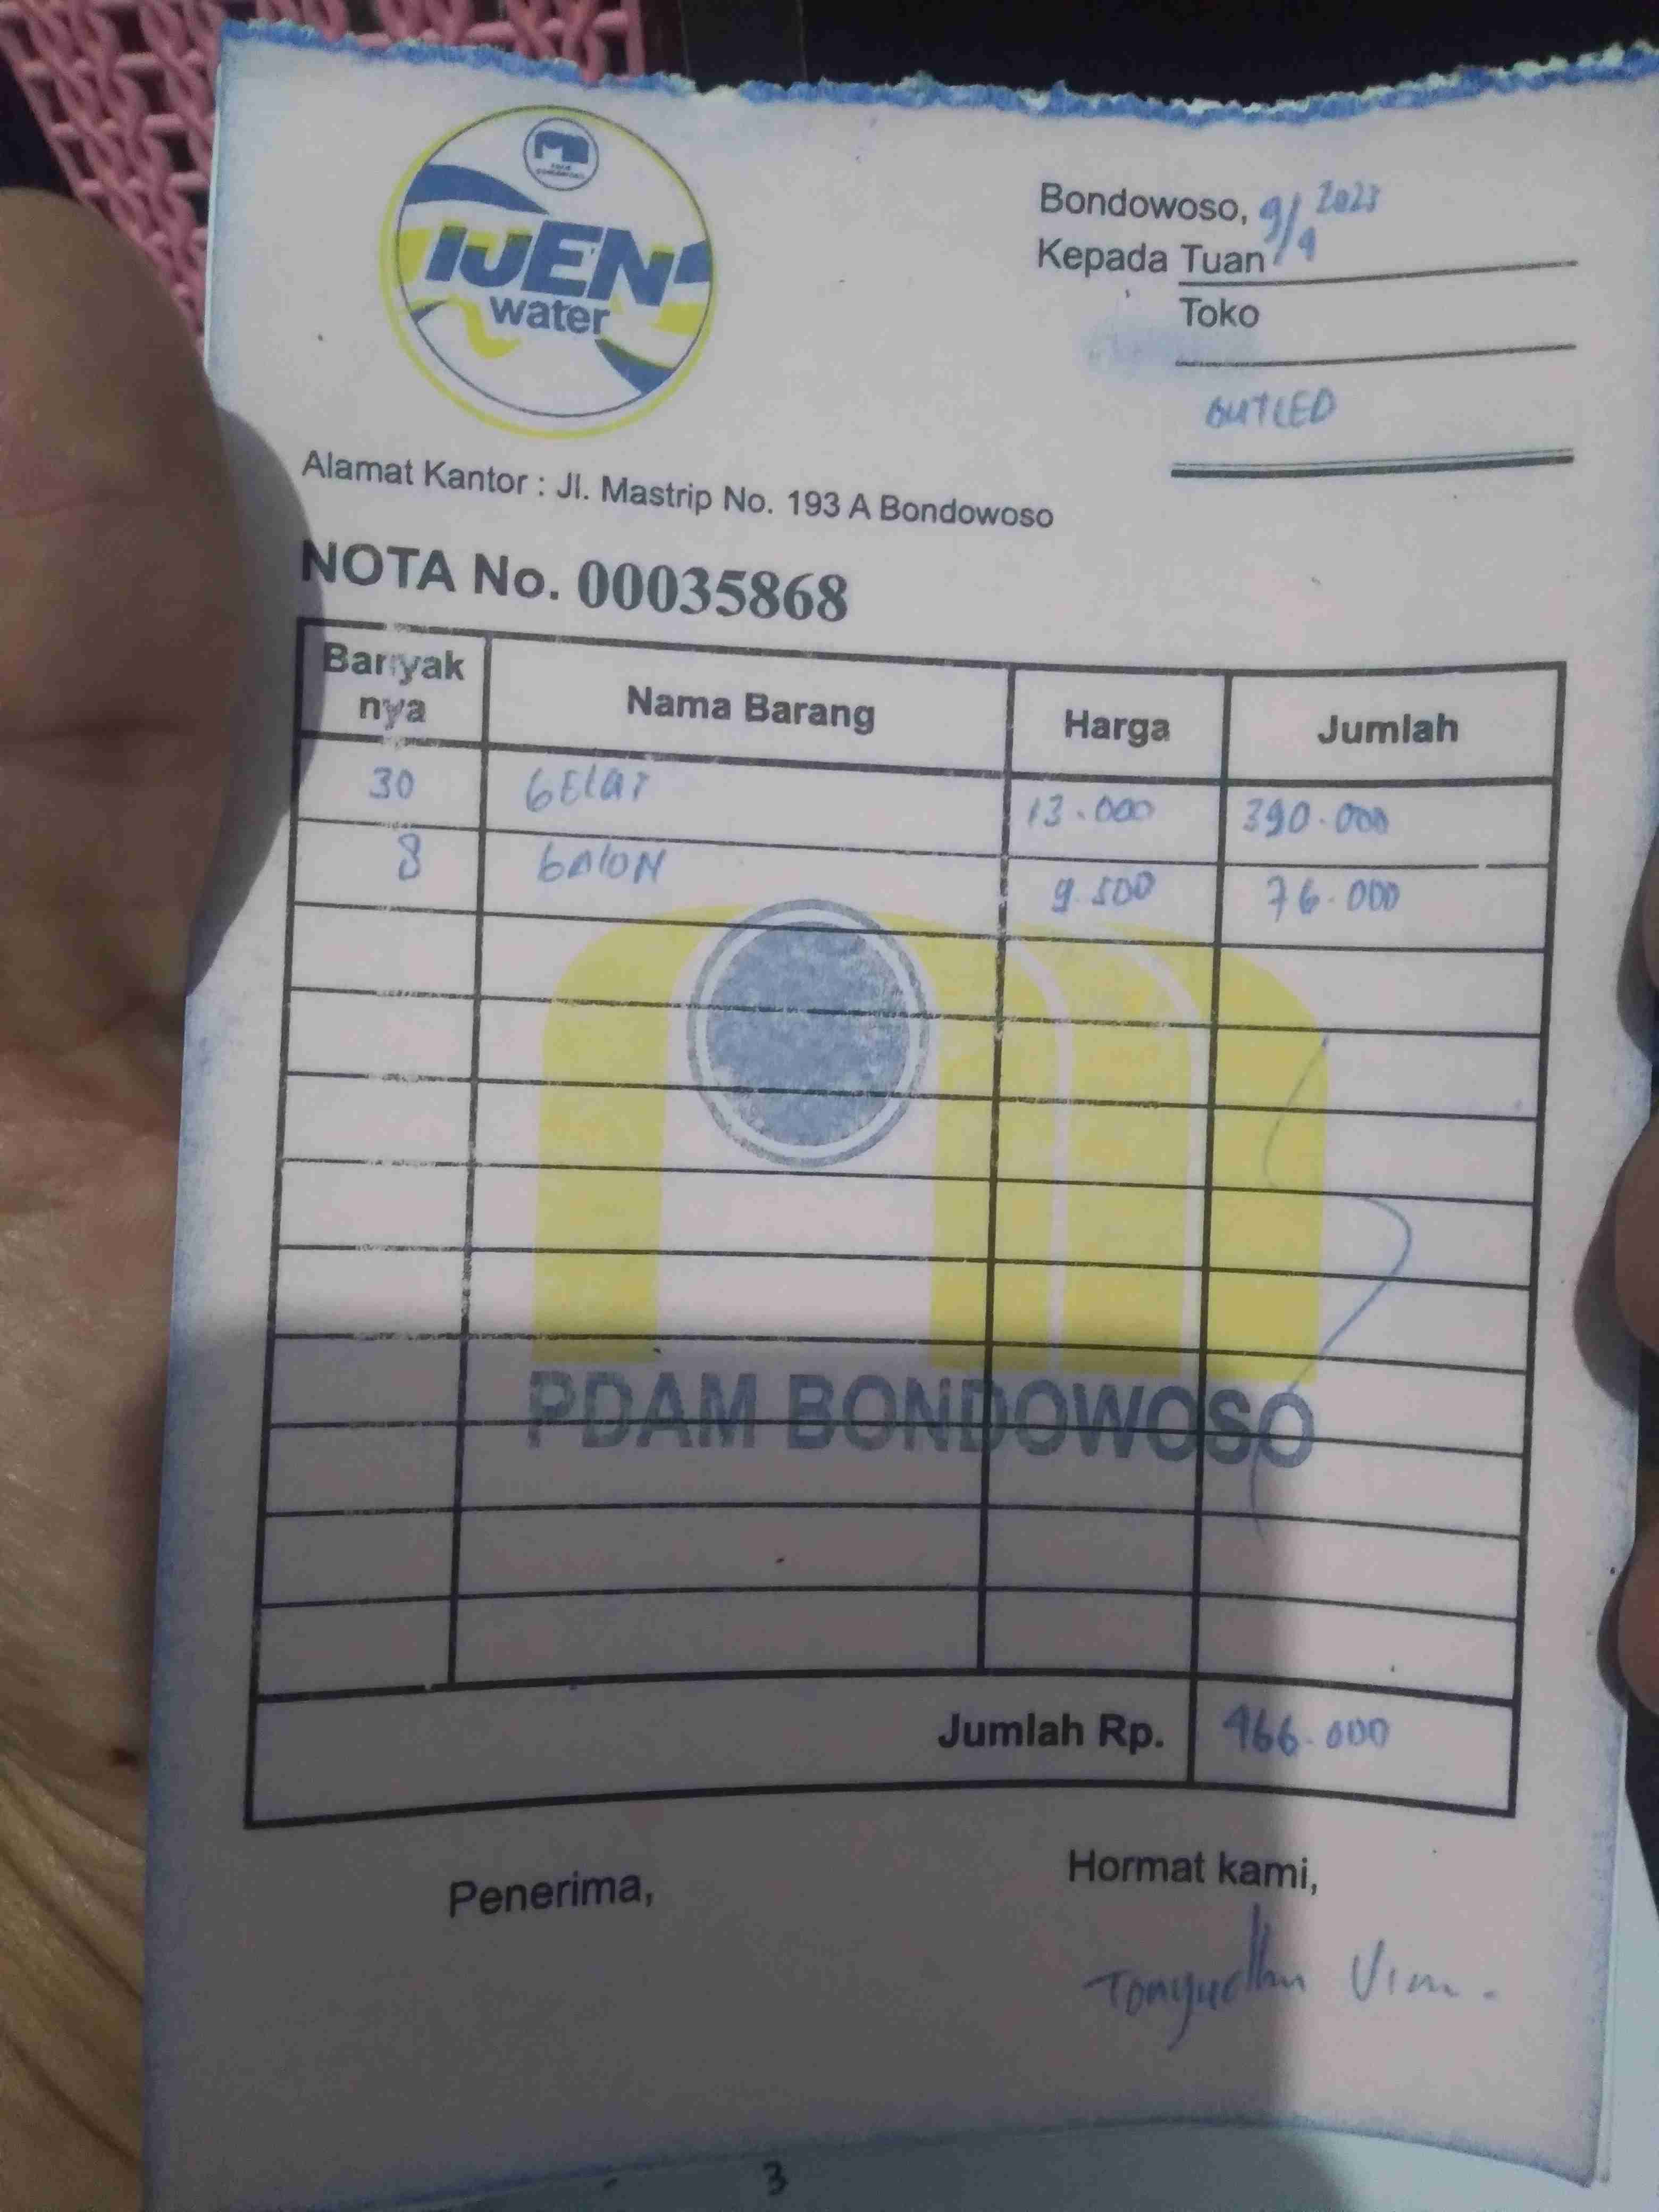 IJEN
water
Bondowoso, 9/4 2023
Kepada Tuan
Toko
OUTLED
Alamat Kantor : Jl. Mastrip No. 193 A Bondowoso
NOTA No. 00035868
Banyak nya Nama Barang Harga Jumlah
30 GELAT 13.000 390.000
8 GALON 9.500 76.000
PDAM BONDOWOSO
Jumlah Rp. 466.000
Penerima, Hormat kami,
3